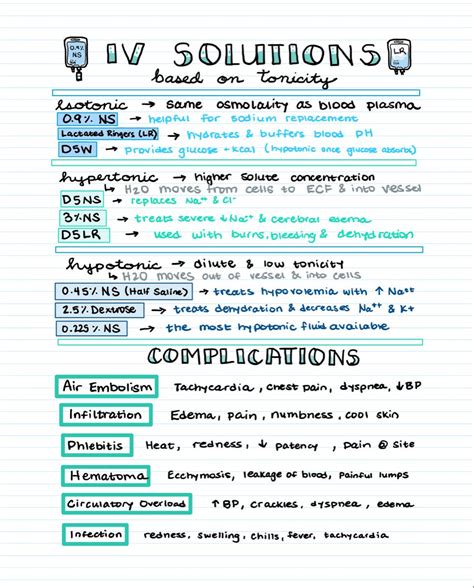 0.9% NS
IV SOLUTIONS
LR
based on tonicity
Isotonic → same osmolality as blood plasma
0.9% NS → helpful for sodium replacement
Lactated Ringers (LR) → hydrates & buffers blood PH
D5W → provides glucose + Kcal (hypotonic once glucose absorbs)
hypertonic → higher solute concentration
↳ H2O moves from cells to ECF & into vessel
D5NS → replaces Na++ & Cl-
3% NS → treats severe ↓Na++ & cerebral edema
D5LR ↳ used with burns, bleeding & dehydration
hypotonic → dilute & low tonicity
↳ H2O moves out of vessel & into cells
0.45% NS (Half Saline) → treats hypovolemia with ↑ Na++
2.5% Dextrose → treats dehydration & decreases Na++ & K+
0.225% NS → the most hypotonic fluid available
COMPLICATIONS
Air Embolism Tachycardia, chest pain, dyspnea, ↓BP
Infiltration Edema, pain, numbness, cool skin
Phlebitis Heat, redness, ↓ patency, pain @ site
Hematoma Ecchymosis, leakage of blood, painful lumps
Circulatory Overload ↑BP, crackles, dyspnea, edema
Infection redness, swelling, chills, fever, tachycardia